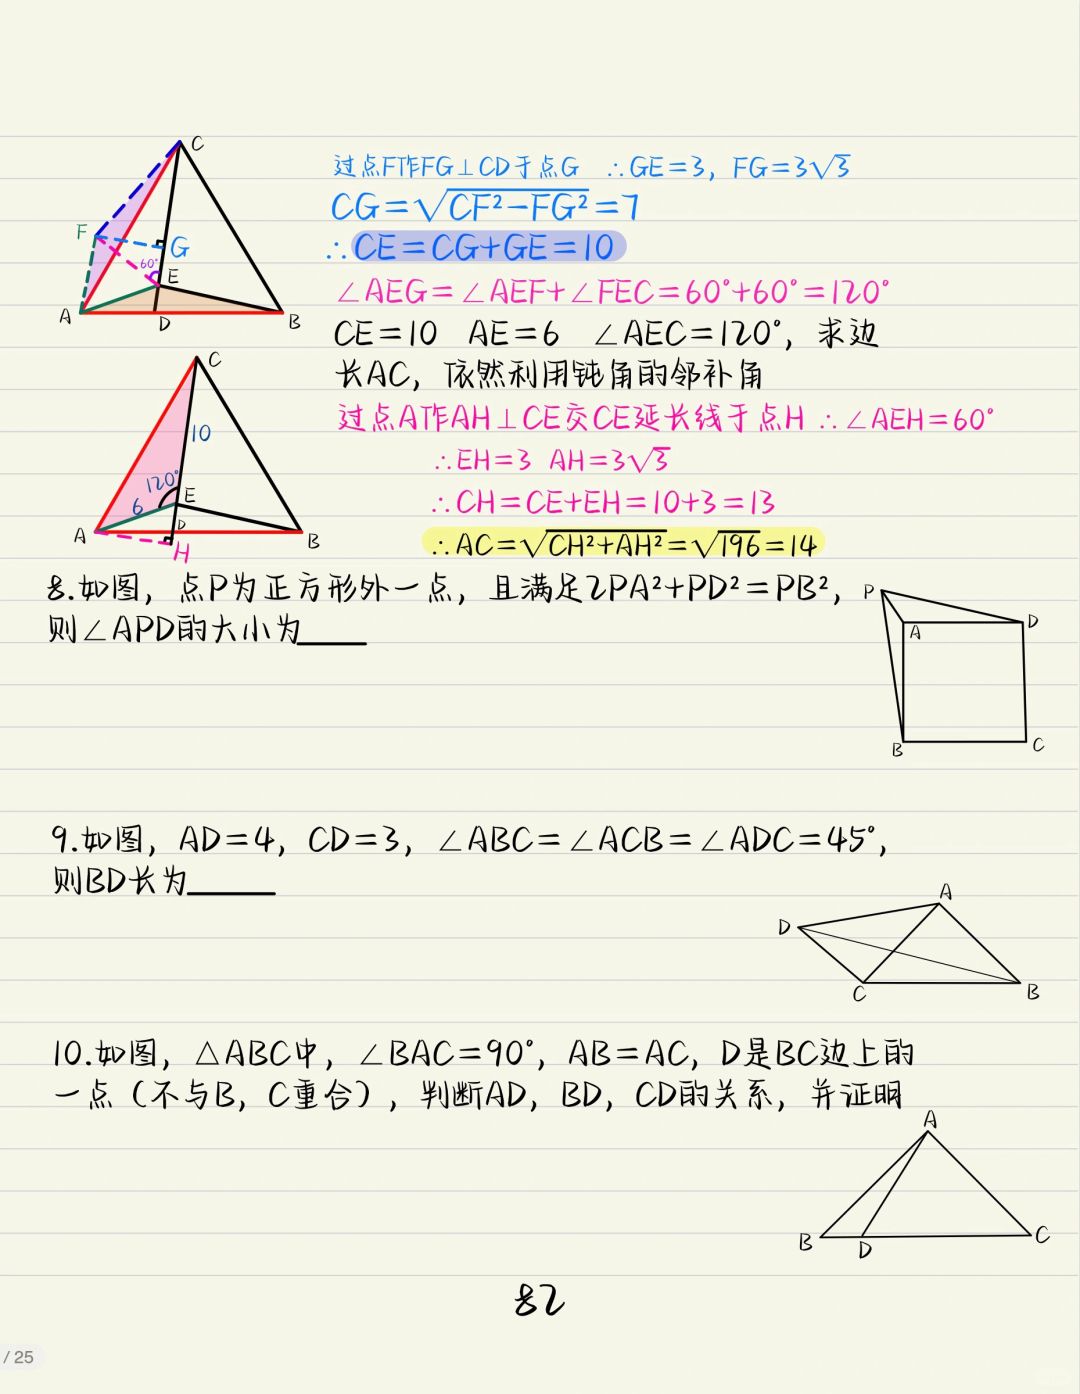 C
F
G
60°
E
A
D
B
过点F作FG⊥CD于点G ∴GE=3, FG=3√3
CG=√CF²-FG²=7
∴CE=CG+GE=10
∠AEG=∠AEF+∠FEC=60°+60°=120°
CE=10 AE=6 ∠AEC=120°, 求边
长AC, 依然利用钝角的邻补角
过点A作AH⊥CE交CE延长线于点H ∴∠AEH=60°
∴EH=3 AH=3√3
∴CH=CE+EH=10+3=13
∴AC=√CH²+AH²=√196=14
C
10
120°
E
6
D
A
H
B
8.如图, 点P为正方形外一点, 且满足2PA²+PD²=PB²,
则∠APD的大小为____
P
A
D
B
C
9.如图, AD=4, CD=3, ∠ABC=∠ACB=∠ADC=45°,
则BD长为____
A
D
C
B
10.如图, △ABC中, ∠BAC=90°, AB=AC, D是BC边上的
一点(不与B, C重合), 判断AD, BD, CD的关系, 并证明
A
B
D
C
82
/ 25